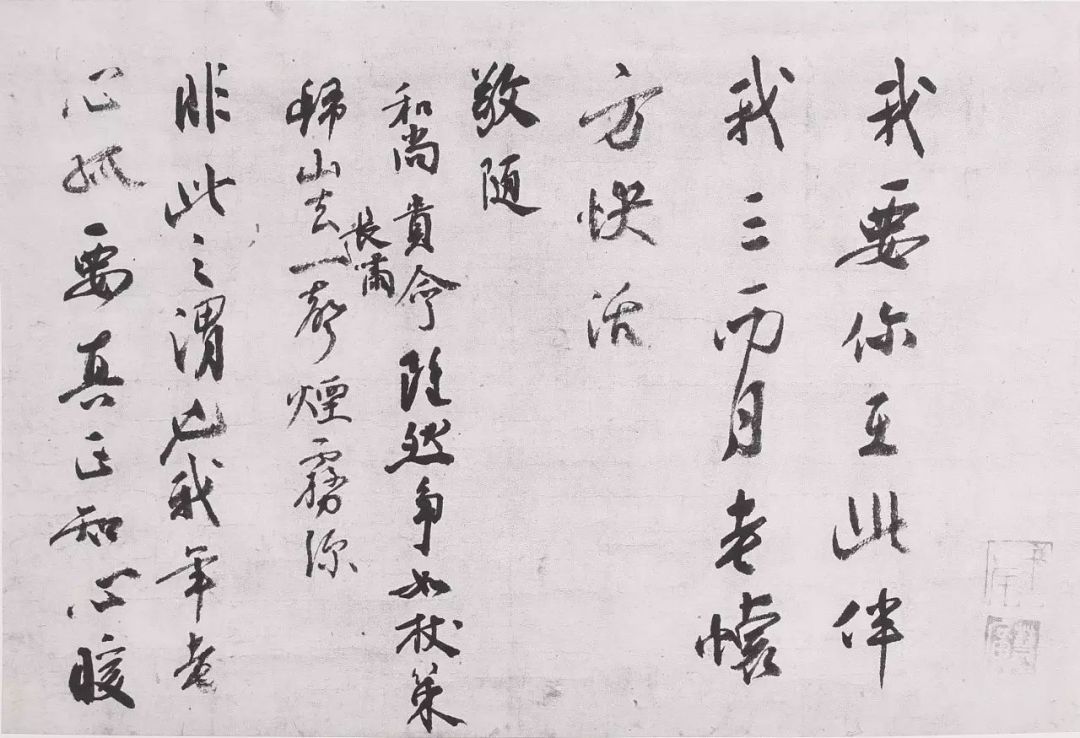 我要你在此伴
我三両月老懷
方快活
敬随
和尚貴命雖然争如杖策
歸山去長嘯一聲煙霧深
非此之謂也我年老
心孤要真正知心暖